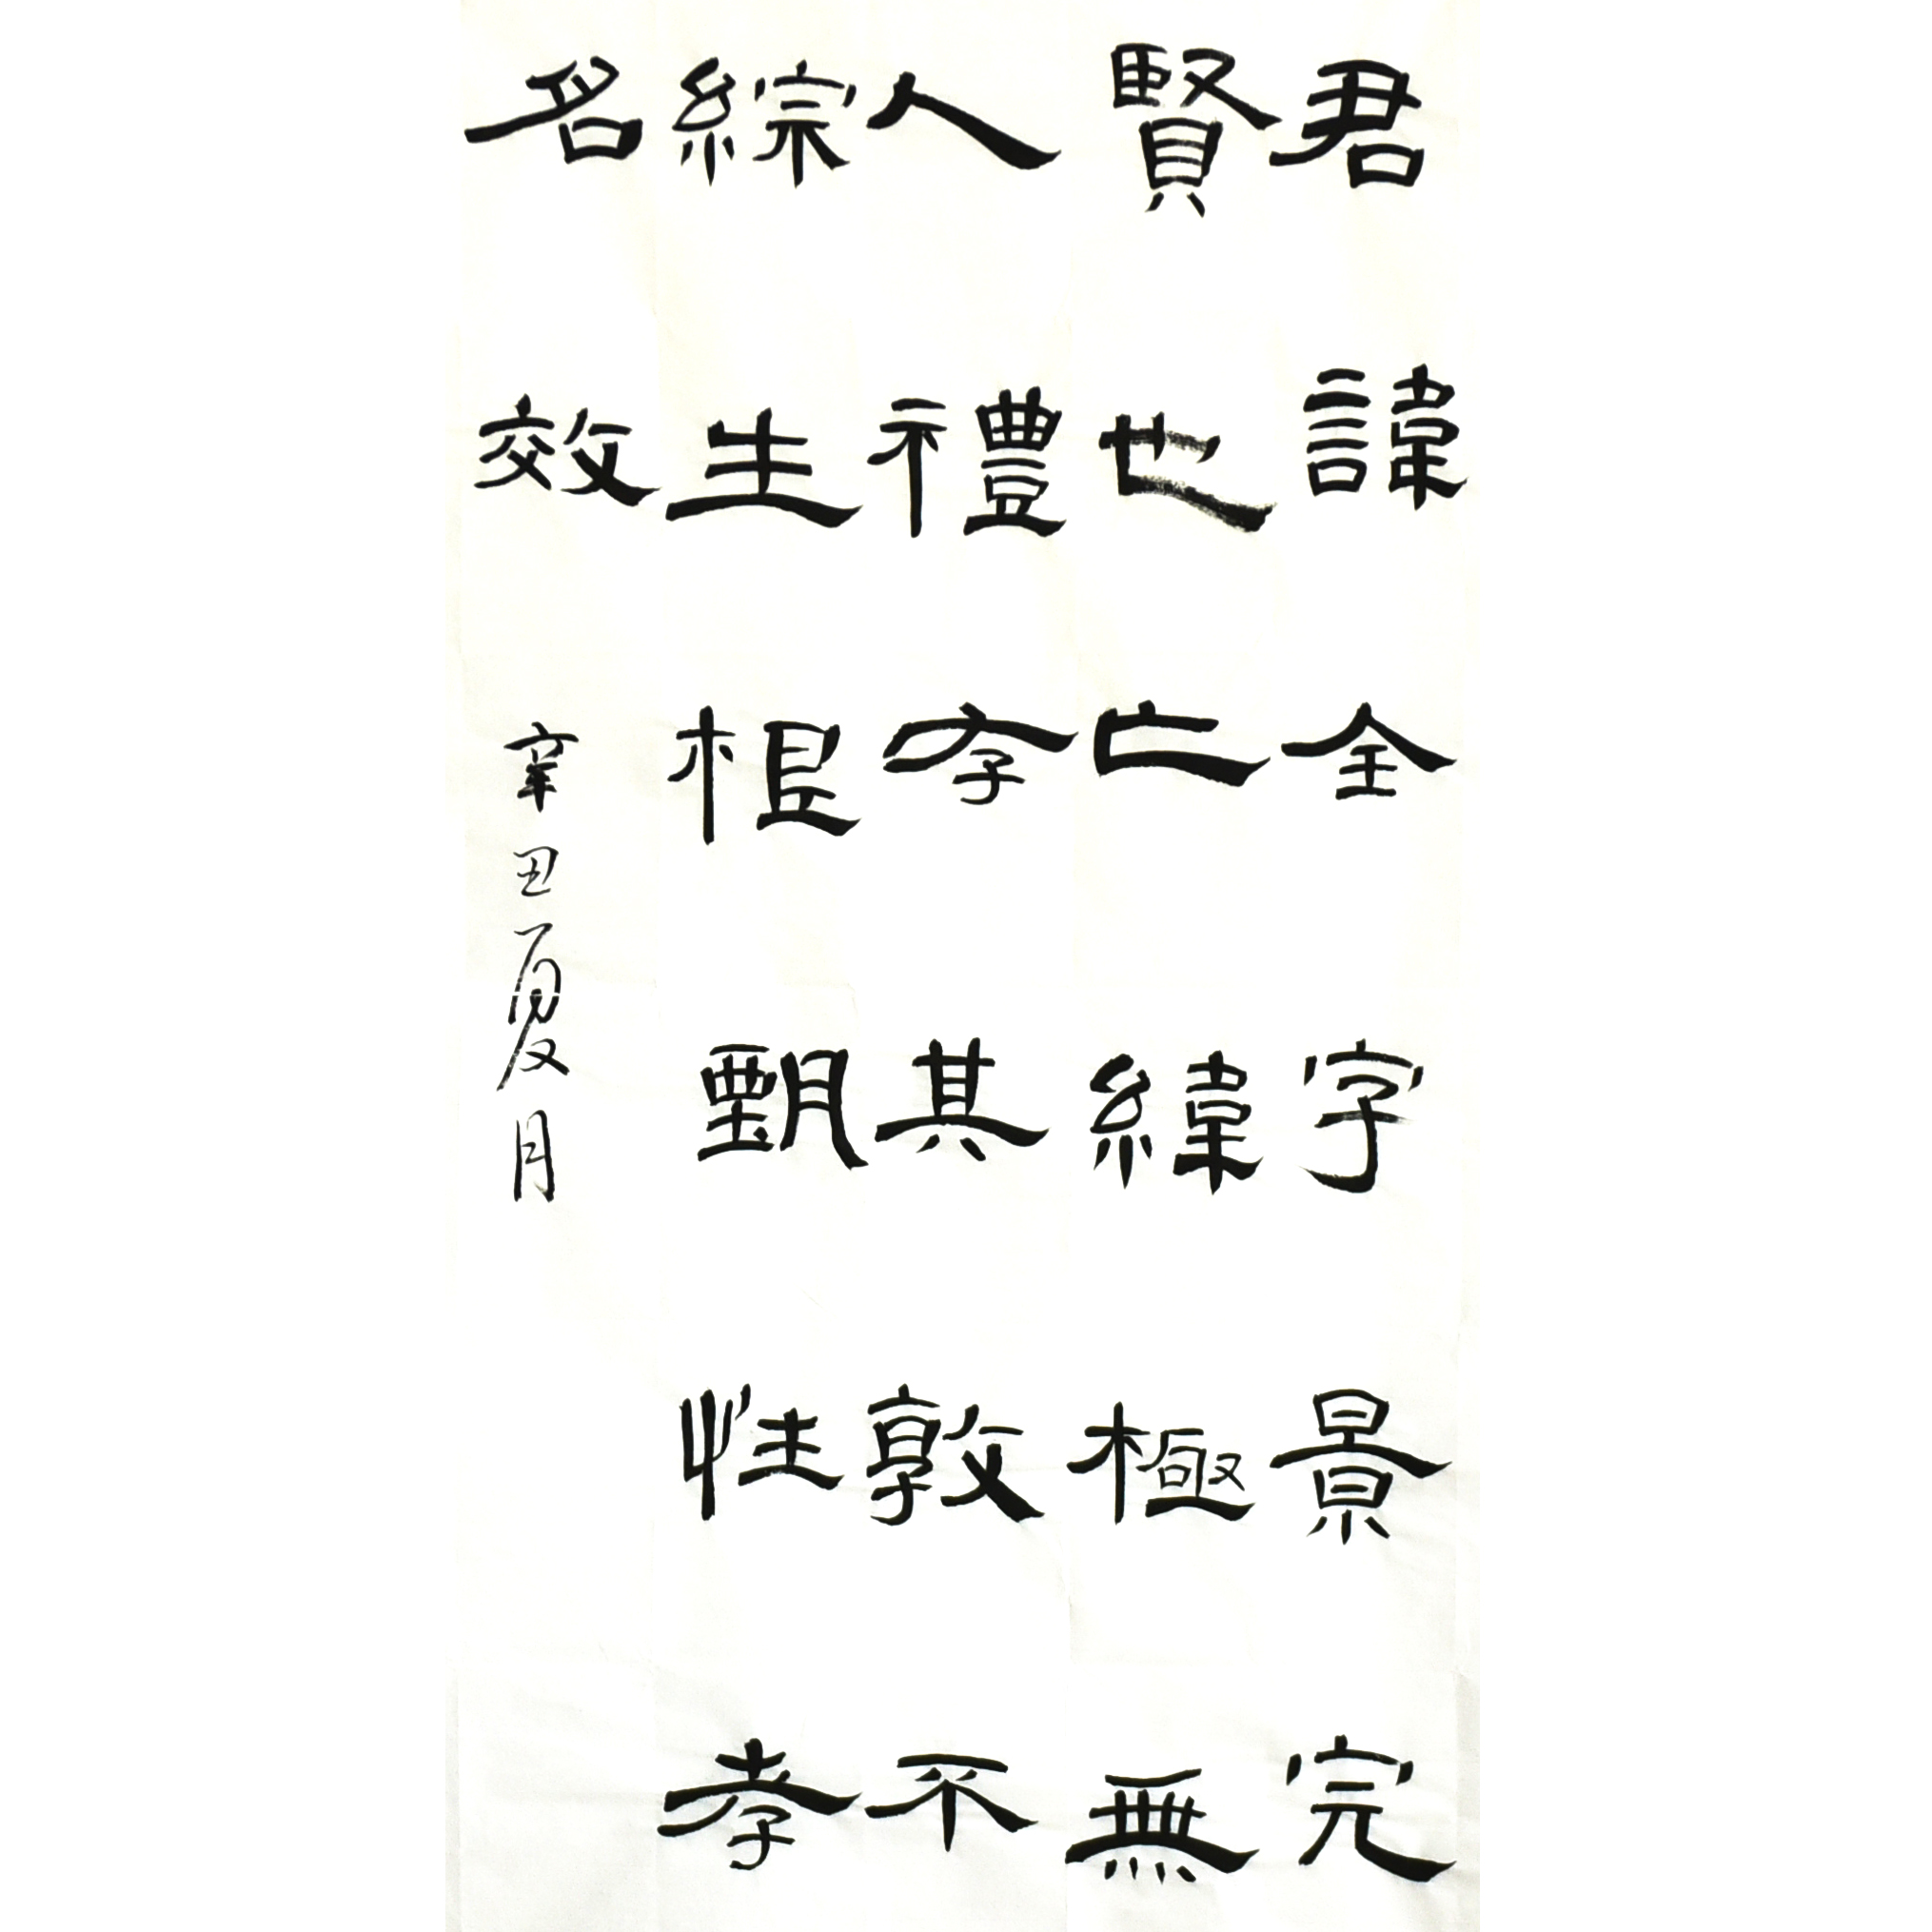 君諱全字景完
賢也亡緯極無
人禮存其敦不
綜生根甄性孝
名效
辛丑夏月